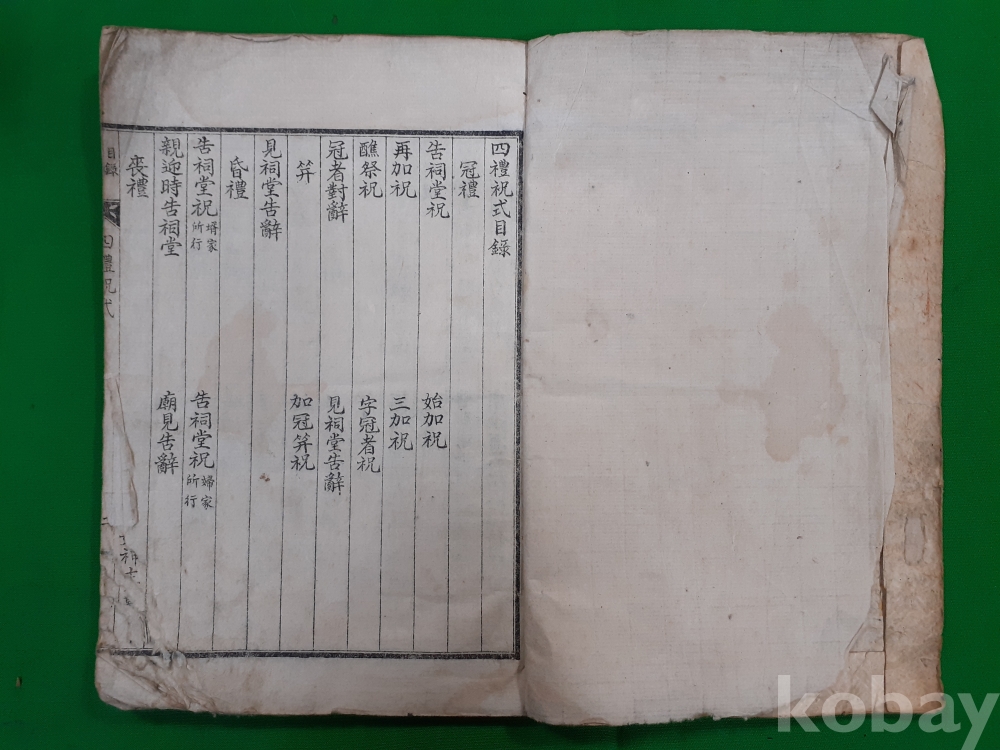 四禮祝式目錄
冠禮
告祠堂祝 始加祝
再加祝 三加祝
醮祭祝 字冠者祝
冠者對辭 見祠堂告辭
筓 加冠筓祝
見祠堂告辭
昏禮
告祠堂祝 壻家所行 告祠堂祝 婦家所行
親迎時告祠堂 廟見告辭
喪禮
目錄 四禮祝式
kobay